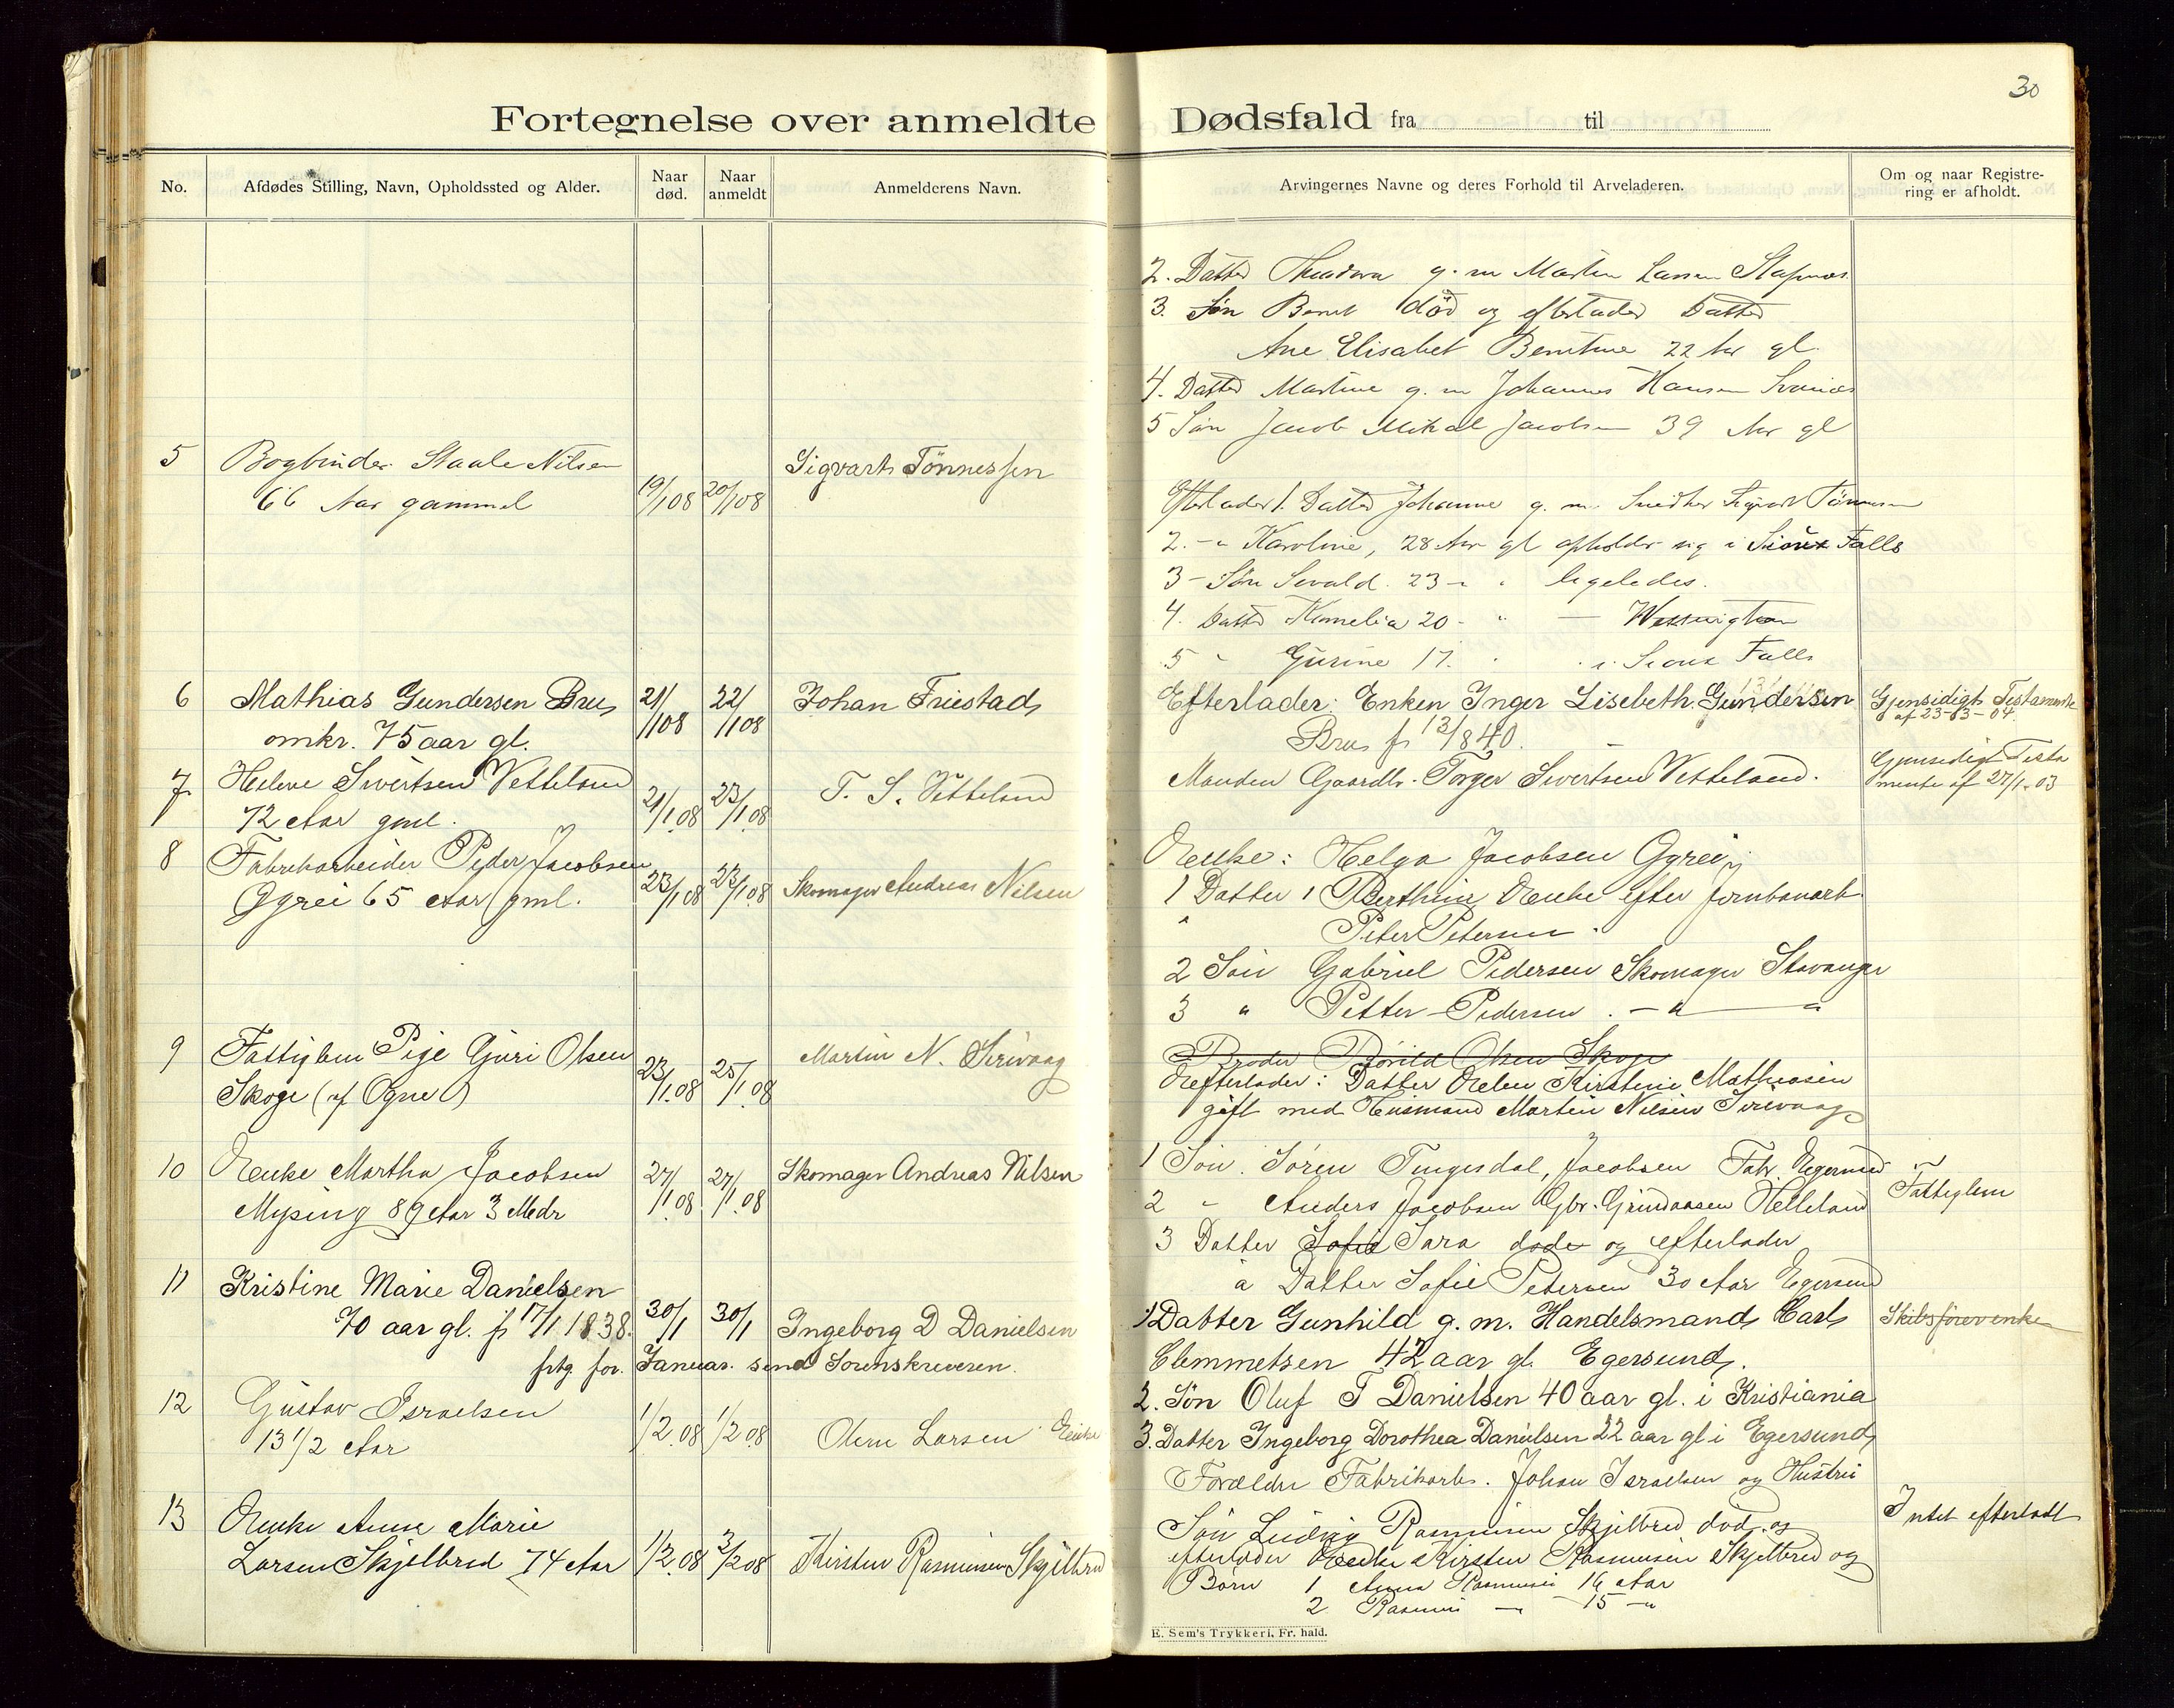 30
Fortegnelse over anmeldte Dødsfald fra til
No.
Afdødes Stilling, Navn, Opholdssted og Alder.
Naar død.
Naar anmeldt
Anmelderens Navn.
Arvingernes Navne og deres Forhold til Arveladeren.
Om og naar Registrering er afholdt.
2. Datter g. m Martin Larsen
3. Søn død og efterlader Datter
Ane Elisabet 22 Aar gl.
4. Datter Martine g. m Johannes Hansen
5 Søn Jacob Mikal Jacobsen 39 Aar gl
5 Bogbinder Staale Nilsen 19/1 08 20/1 08 Sigvart Tönnessen
66 Aar gammel
Efterlader 1. Datter Johanne g. m. Sigvart Tönnesen
2. -"- Karoline, 28 Aar gl opholder sig i Sioux Falls
3 - Søn Sevald. 23 - " " ligeledes.
4. Datter Kornelia 20 - " —
5 " Gurine 17. " " i Sioux Falls
6 Mathias Gundersen Brus 21/1 08 22/1 08 Johan Friestad
omkr. 75 aar gl.
Efterlader: Enken Inger Lisebeth Gundersen
Brus f 13/8 40.
Gjensidigt Testamente
af 23-03-04
7 Helene Sivertsen Vetteland 21/1 08 23/1 08 T. S. Vetteland
72 Aar gml.
Manden Gaardbr. Torger Sivertsen Vetteland.
Gjensidigt Testa
mente af 27/1-03
8 Fabrikarbeider Peder Jacobsen 23/1 08 23/1 08 Skomager Andreas Nilsen
Ggrei 65 Aar gml.
Enke: Helga Jacobsen Ggrei
1 Datter 1 Berthine Enke efter Jernbanearb.
" Peter Petersen.
2 Søn Gabriel Pedersen Skomager Stavanger
3 " Petter Pedersen. - " — "
9 Fattiglem Pige Guri Olsen 23/1.08 25/1.08 Martin N. Sirivaag
Skoge (af Ogne)
Broder Olsen Skoge
Efterlader: Datter Elen Kirstine Mathiasen
gift med Husmand Martin Nilsen Sirevaag
10 Enke Martha Jacobsen 27/1 08 27/1.08 Skomager Andreas Nilsen
Mysing 89 Aar 3 Mdr
1 Søn. Søren Tengesdal, Jacobsen Fabr. Egersund
2 - Anders Jacobsen Gbr. Helleland
3 Datter Sofie Sara døde og efterlader
a Datter Sofie Petersen 30 Aar Egersund
Fattiglem
11 Kristine Marie Danielsen 30/1 30/1 Ingeborg D Danielsen
70 aar gl. f 17/1 1838.
1) Datter Gunhild g. m. Handelsmand Carl
Clemmetsen 42 aar gl. Egersund.
2. Søn Oluf T Danielsen 40 aar gl. i Kristiania
3. Datter Ingeborg Dorothea Danielsen 22 aar gl i Egersund
Skibsførerenke
frtg. for Januar. send Sorenskriveren.
12 Gustav Israelsen 1/2.08 1/2 08 Olene Larsen Enke
13 1/2 Aar
Forældre Fabrikarb. Johan Israelsen og Hustru
13 Enke Anne Marie
Larsen Skjelbred 74 Aar 1/2.08 3/2 08 Kirsten Rasmussen Skjelbred
Søn Ludvig Rasmussen Skjelbred død og
efterlader Enke Kirsten Rasmussen Skjelbred og
Børn 1 Anna Rasmussen 16 Aar
2 Rasmus — 15 -"
Intet efterladt
E. Sem's Trykkeri, Fr. hald.